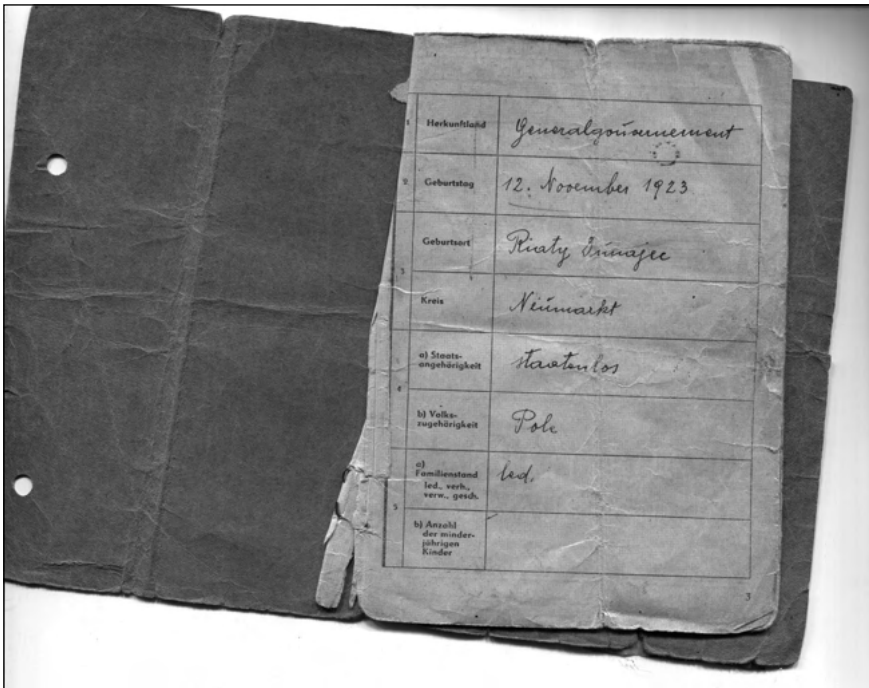 1. Herkunftsland Generalgouvernement
2. Geburtstag 12. November 1923
3 Geburtsort Dunajec
Kreis Neumarkt
4 a) Staats-
angehörigkeit staatenlos
b) Volks-
zugehörigkeit Pole
5 a)
Familienstand led.
led., verh.,
verw., gesch.
b) Anzahl
der minder-
jährigen
Kinder
3